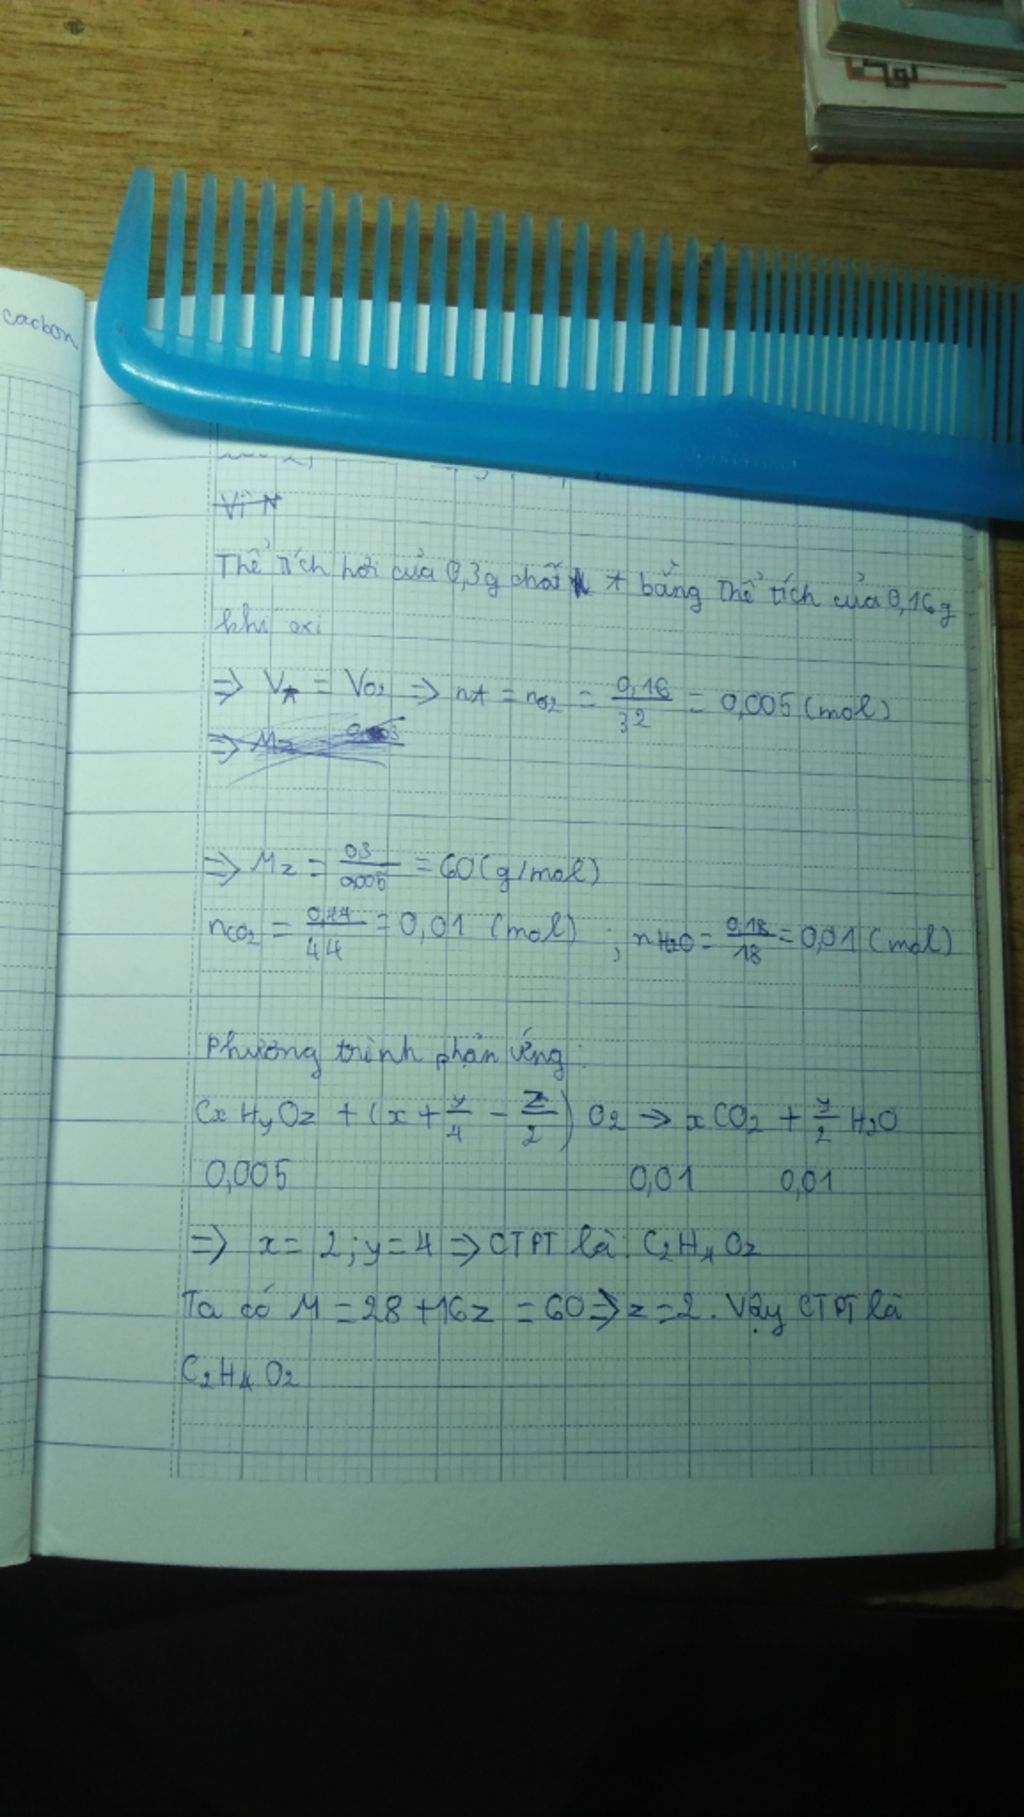 cacbon
Vì N
Thể tích hơi của 0,3g chất A bằng thể tích của 0,16g
khí oxi
=> V_A = V_O2 => n_A = n_O2 = 0,16/32 = 0,005 (mol)
=> Mz
=> Mz = 03/0,005 = 60 (g/mol)
nCO2 = 0,44/44 = 0,01 (mol) ; nH2O = 0,18/18 = 0,01 (mol)
Phương trình phản ứng:
CxHyOz + (x + y/4 - z/2) O2 → xCO2 + y/2 H2O
0,005 0,01 0,01
=> x = 2; y = 4 => CTPT là: C2H4Oz
Ta có M = 28 + 16z = 60 => z = 2. Vậy CTPT là
C2H4O2